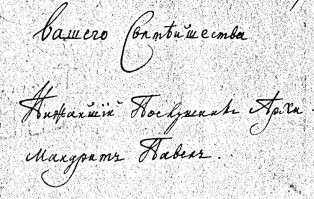 Вашего Святѣйшества
Нижайшій Послушникъ Архи
мандритъ Павелъ.